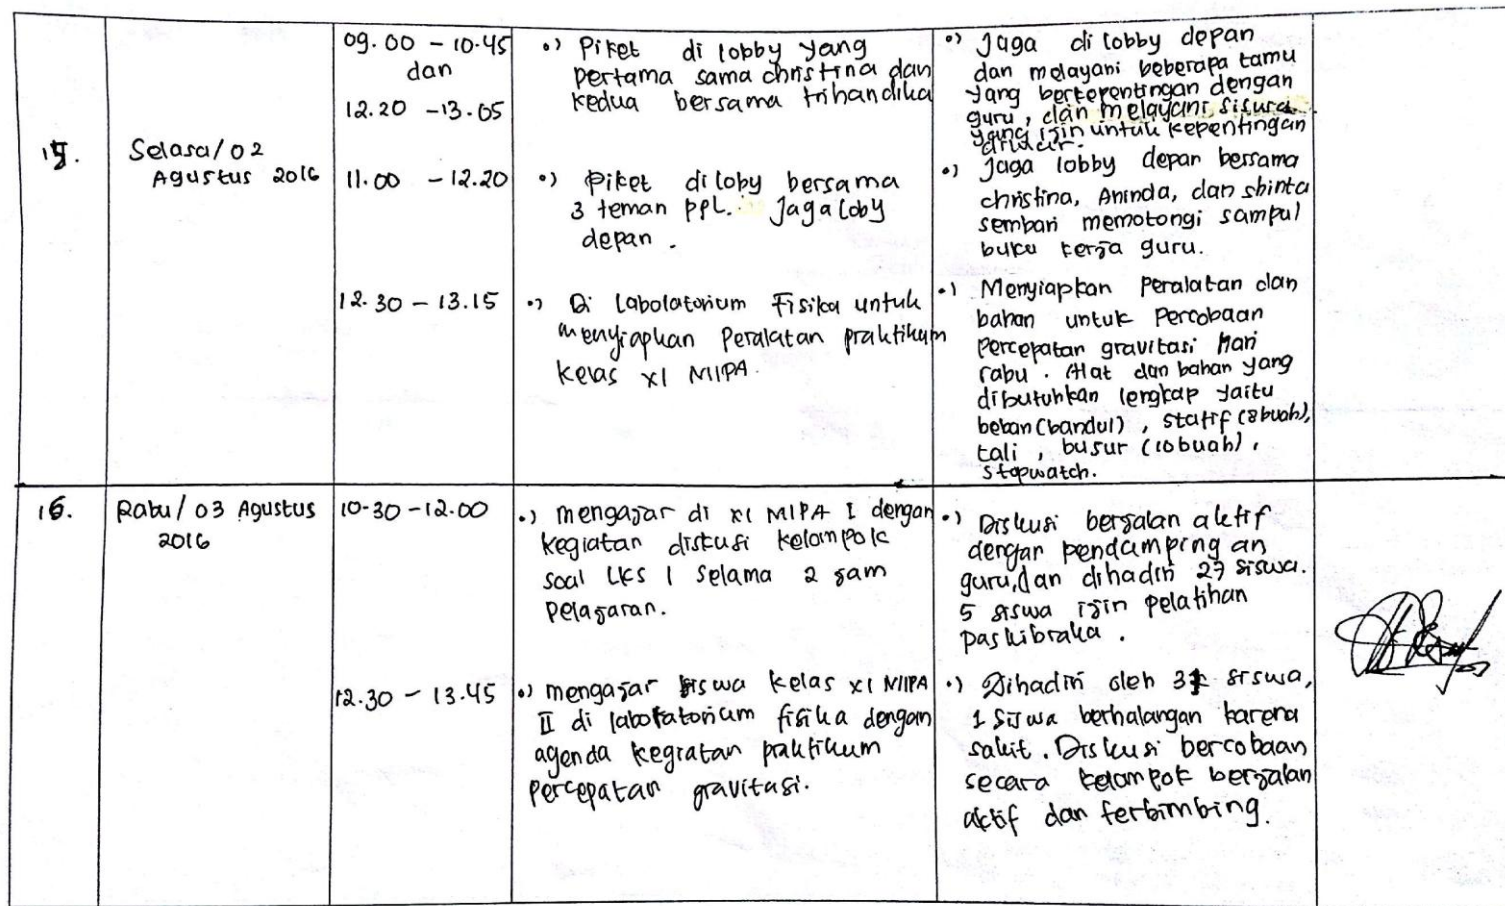 15.
Selasa/02
Agustus 2016
09.00 - 10.45
dan
12.20 - 13.05
•) Piket di lobby yang
pertama sama christina dan
kedua bersama trihandika
•) Jaga di lobby depan
dan melayani beberapa tamu
yang berkepentingan dengan
guru, dan melayani siswa
yang izin untuk kepentingan
diluar.
11.00 - 12.20
•) Piket di loby bersama
3 teman PPL. Jaga loby
depan.
•) Jaga lobby depan bersama
christina, Aninda, dan shinta
sembari memotongi sampul
buku kerja guru.
12.30 - 13.15
•) Di Labolatorium Fisika untuk
menyiapkan Peralatan praktikum
kelas XI MIPA.
•) Menyiapkan Peralatan dan
bahan untuk Percobaan
Percepatan gravitasi Hari
rabu. Alat dan bahan yang
dibutuhkan lengkap yaitu
beban (bandul), statif (8 buah),
tali, busur (10 buah),
stopwatch.
16.
Rabu/ 03 Agustus
2016
10.30 - 12.00
•) mengajar di XI MIPA I dengan
kegiatan diskusi kelompok
soal LKS 1 selama 2 jam
pelajaran.
•) Diskusi berjalan aktif
dengan pendamping an
guru, dan dihadiri 27 siswa.
5 siswa izin pelatihan
paskibraka.
12.30 - 13.45
•) mengajar siswa kelas XI MIPA
II di laboratorium fisika dengan
agenda kegiatan praktikum
percepatan gravitasi.
•) Dihadiri oleh siswa,
1 siswa berhalangan karena
sakit. Diskusi bercobaan
secara kelompok berjalan
aktif dan terbimbing.